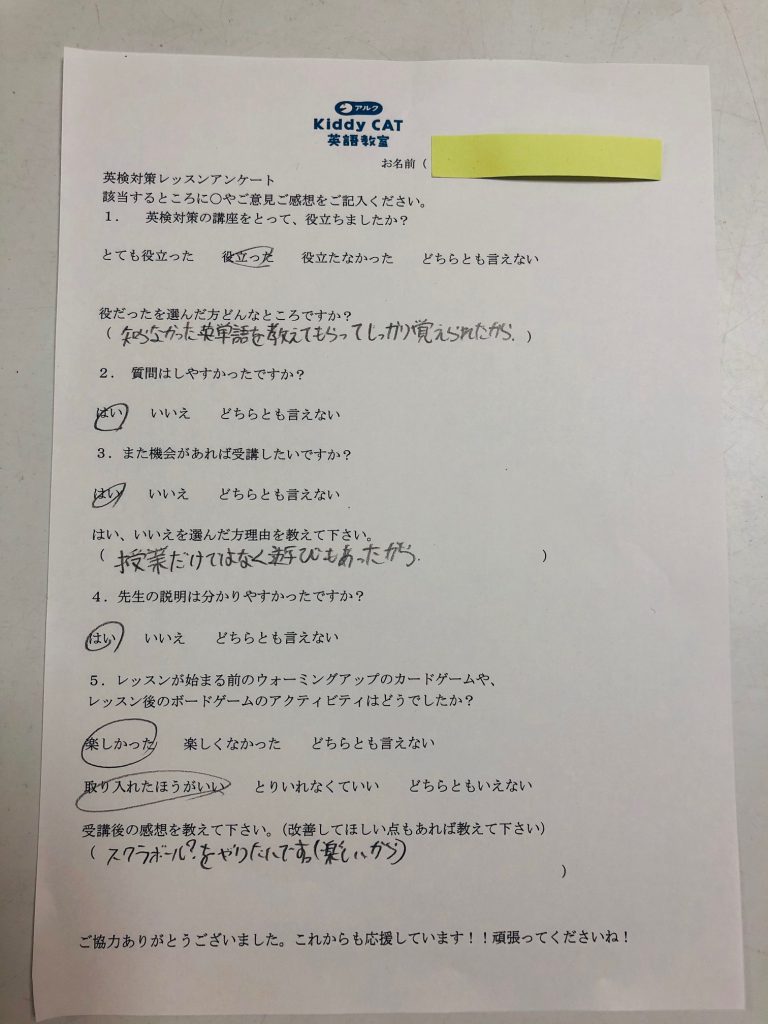 アルク
Kiddy CAT
英語教室
お名前(
英検対策レッスンアンケート
該当するところに〇やご意見ご感想をご記入ください。
1. 英検対策の講座をとって、役立ちましたか?
とても役立った 役立った 役立たなかった どちらとも言えない
役だったを選んだ方どんなところですか?
(知らなかった英単語を教えてもらってしっかり覚えられたから.)
2. 質問はしやすかったですか?
はい いいえ どちらとも言えない
3.また機会があれば受講したいですか?
はい いいえ どちらとも言えない
はい、いいえを選んだ方理由を教えて下さい。
(授業だけではなく遊びもあったから.)
4.先生の説明は分かりやすかったですか?
はい いいえ どちらとも言えない
5.レッスンが始まる前のウォーミングアップのカードゲームや、
レッスン後のボードゲームのアクティビティはどうでしたか?
楽しかった 楽しくなかった どちらとも言えない
取り入れたほうがいい とりいれなくていい どちらともいえない
受講後の感想を教えて下さい。(改善してほしい点もあれば教えて下さい)
(スクラボール?をやりたいです。(楽しいから)
)
ご協力ありがとうございました。これからも応援しています!!頑張ってくださいね!